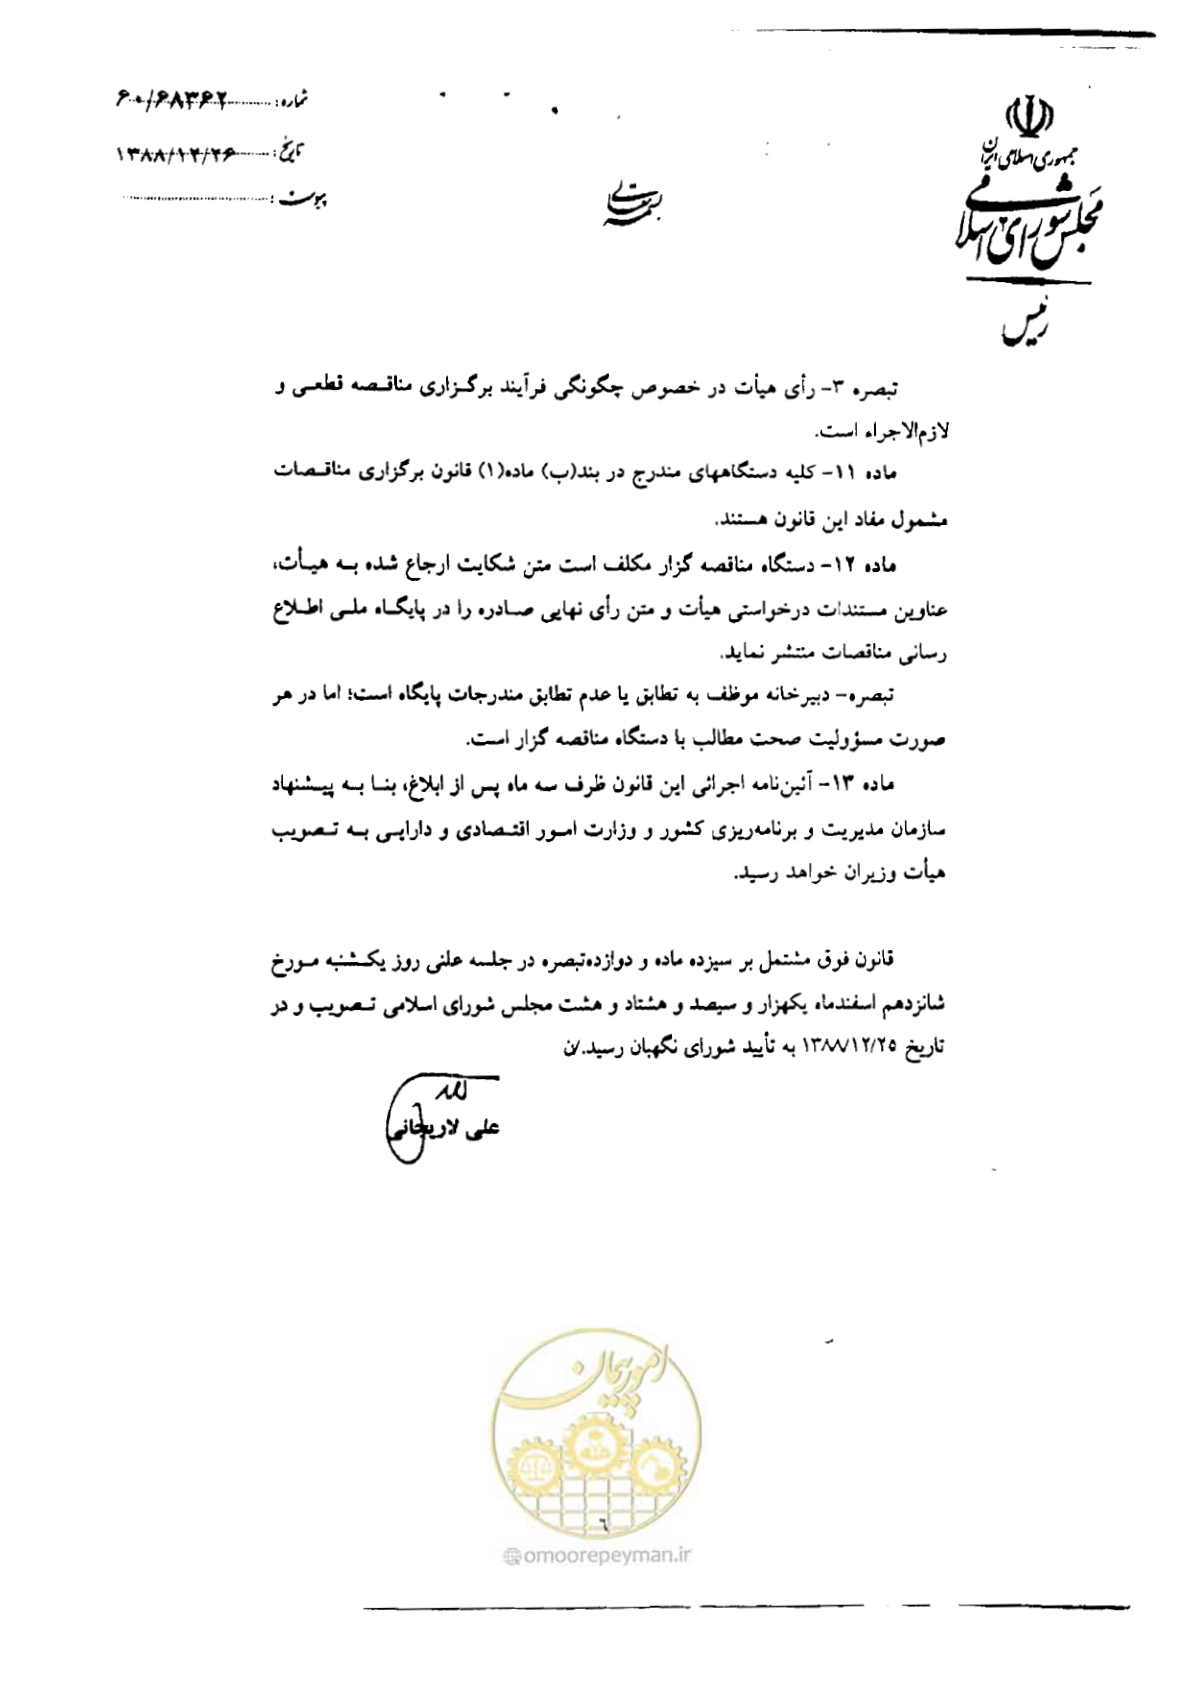 جمهوری اسلامی ایران
مجلس شورای اسلامی
رئیس
بسمه تعالی
شماره: ۶۰/۶۸۳۶۲
تاریخ: ۱۳۸۸/۱۲/۲۶
پیوست:
تبصره ۳- رأی هیأت در خصوص چگونگی فرآیند برگزاری مناقصه قطعی و
لازم‌الاجراء است.
ماده ۱۱- کلیه دستگاههای مندرج در بند(ب) ماده(۱) قانون برگزاری مناقصات
مشمول مفاد این قانون هستند.
ماده ۱۲- دستگاه مناقصه گزار مکلف است متن شکایت ارجاع شده به هیأت،
عناوین مستندات درخواستی هیأت و متن رأی نهایی صادره را در پایگاه ملی اطلاع
رسانی مناقصات منتشر نماید.
تبصره- دبیرخانه موظف به تطابق یا عدم تطابق مندرجات پایگاه است؛ اما در هر
صورت مسؤولیت صحت مطالب با دستگاه مناقصه گزار است.
ماده ۱۳- آئین‌نامه اجرائی این قانون ظرف سه ماه پس از ابلاغ، بنا به پیشنهاد
سازمان مدیریت و برنامه‌ریزی کشور و وزارت امور اقتصادی و دارایی به تصویب
هیأت وزیران خواهد رسید.
قانون فوق مشتمل بر سیزده ماده و دوازده‌تبصره در جلسه علنی روز یکشنبه مورخ
شانزدهم اسفندماه یکهزار و سیصد و هشتاد و هشت مجلس شورای اسلامی تصویب و در
تاریخ ۱۳۸۸/۱۲/۲۵ به تأیید شورای نگهبان رسید./ن
علی لاریجانی
امور پیمان
٦
omoorepeyman.ir